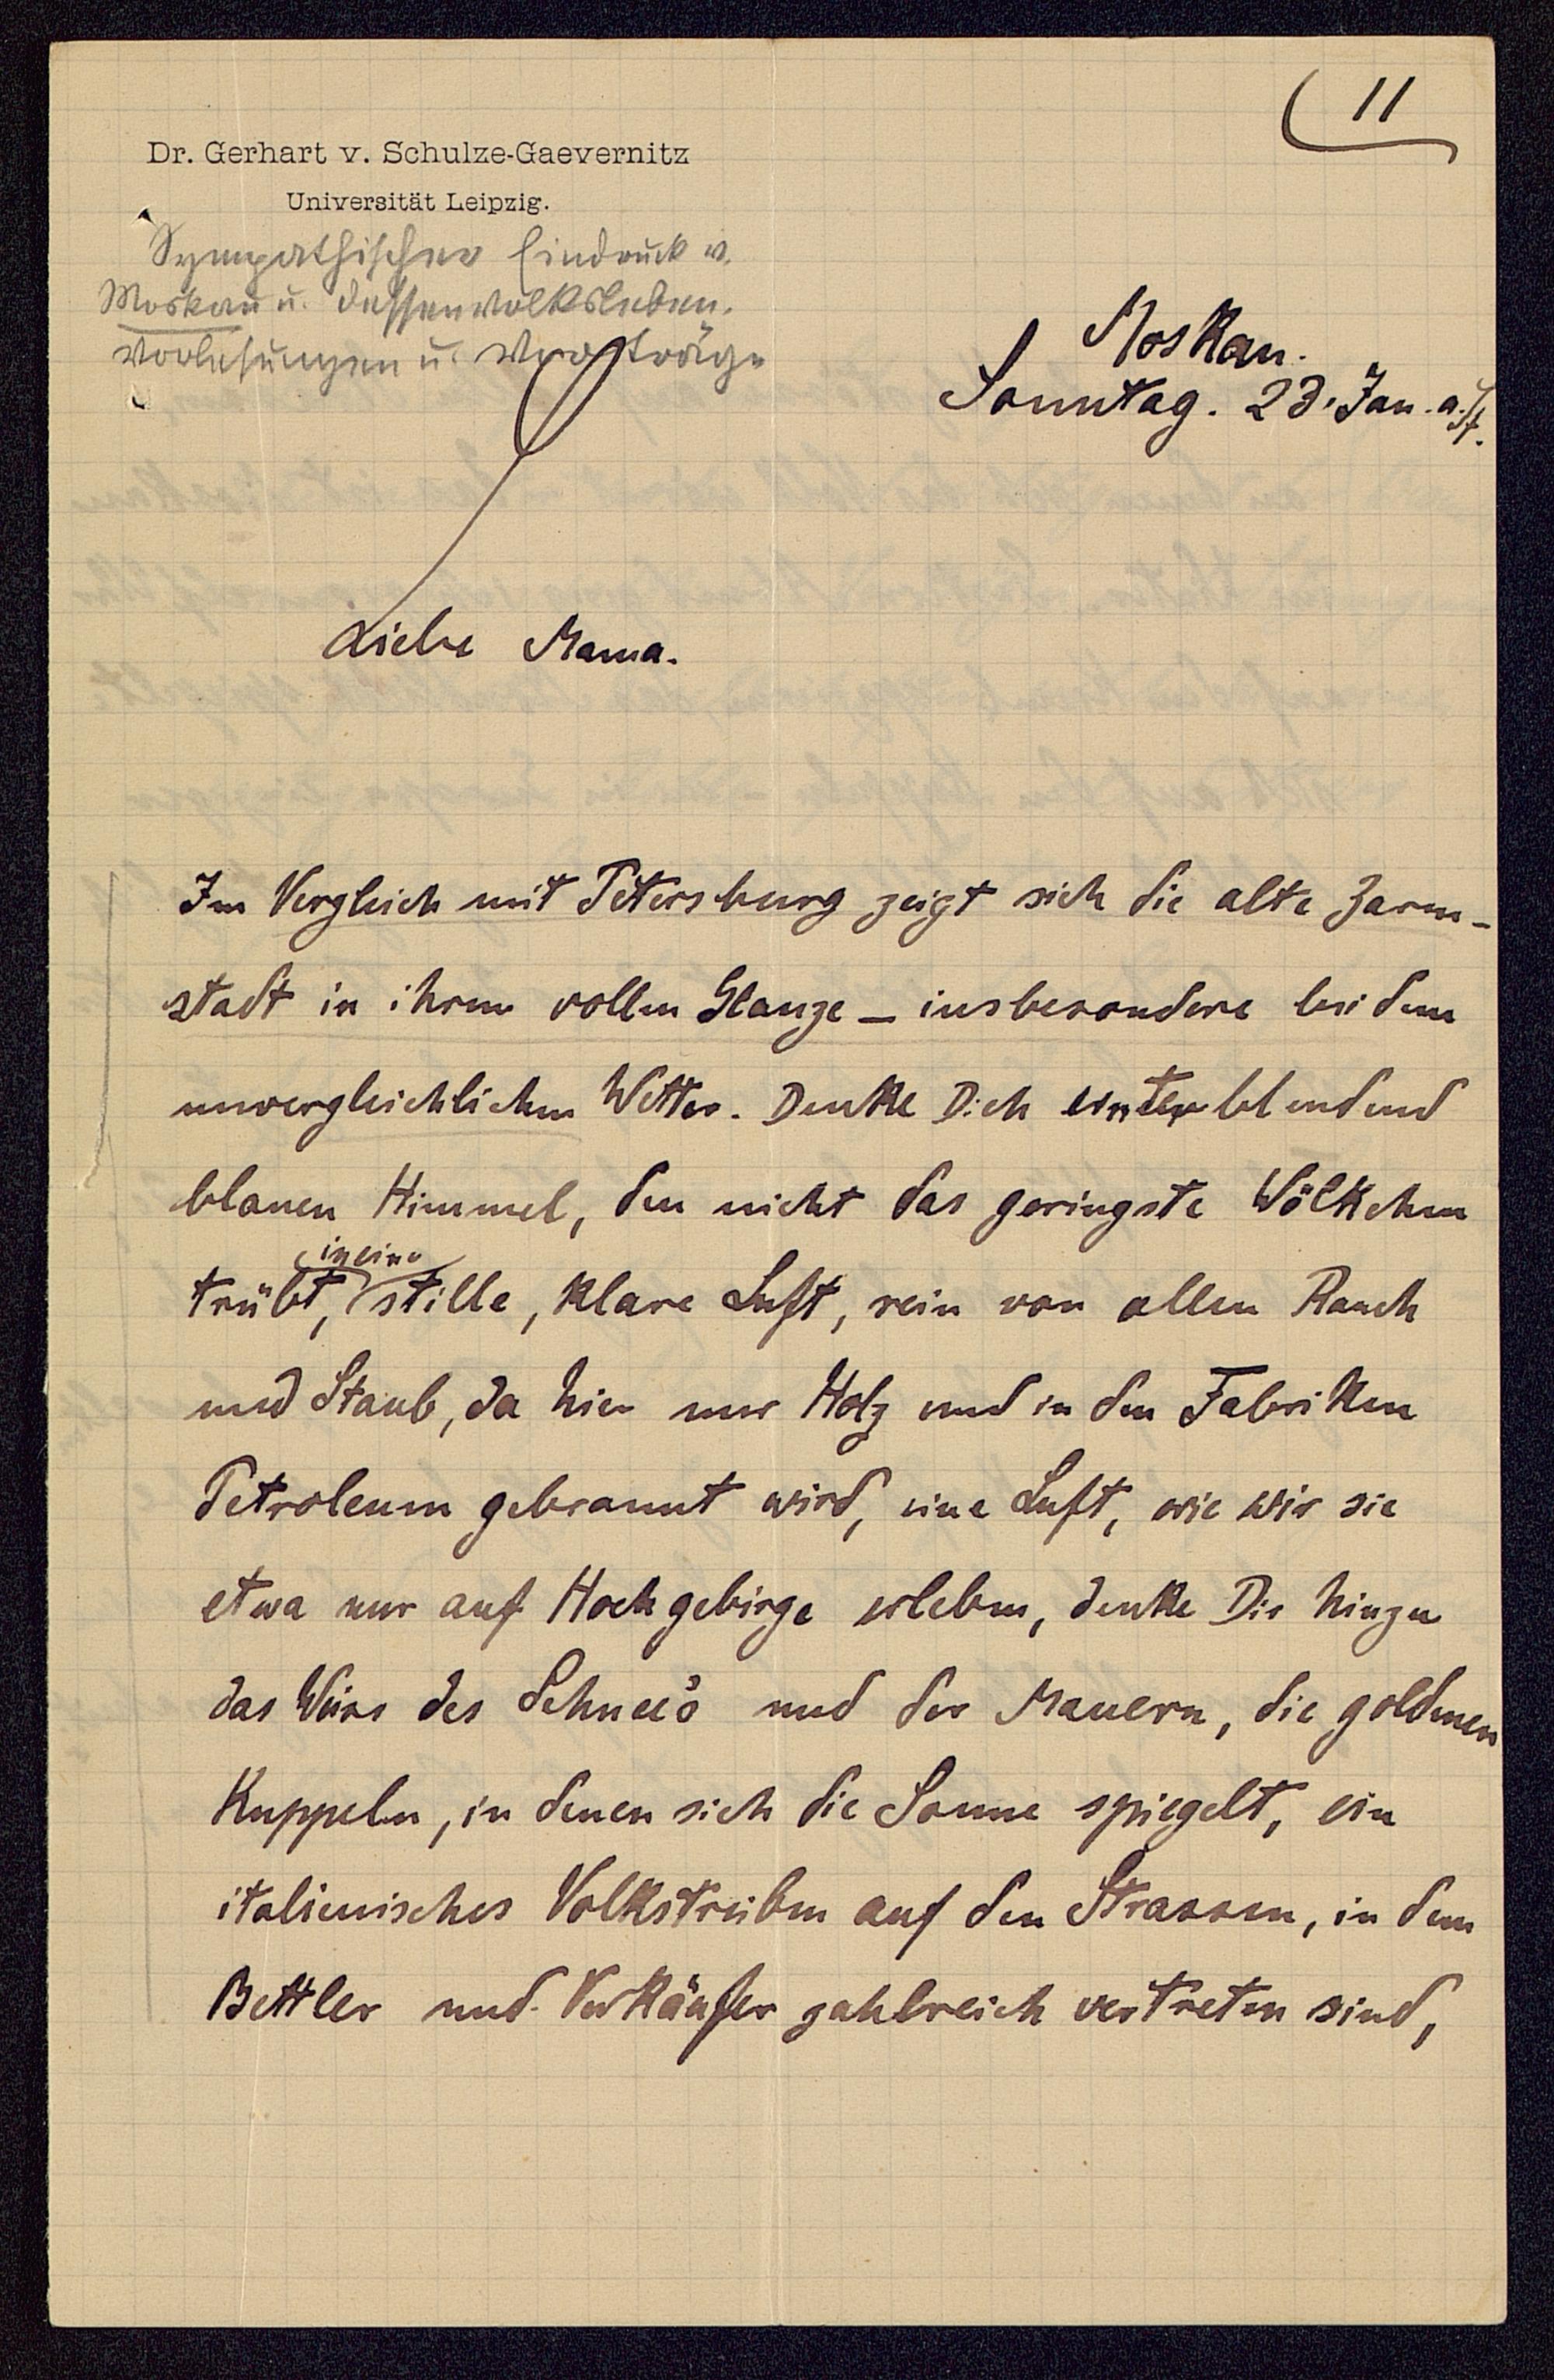 11
Dr. Gerhart v. Schulze-Gaevernitz
Universität Leipzig.
Sympathischer Eindruck v.
Moskau u. dessen Volksleben.
Vorlesungen u. Vorträge
Moskau.
Sonntag. 23. Jan. a. St.
Liebe Mama.
Im Vergleich mit Petersburg zeigt sich die alte Zaren-
stadt in ihrem vollen Glanze – insbesondere bei dem
unvergleichlichen Wetter. Denke Dich unter blendend
blauen Himmel, den nicht das geringste Wölkchen
trübt, in eine stille, klare Luft, rein von allem Rauch
und Staub, da hier nur Holz und in den Fabriken
Petroleum gebrannt wird, eine Luft, wie wir sie
etwa nur auf Hochgebirge erleben, denke Dir hinzu
das Weiss des Schnee's und der Mauern, die goldenen
Kuppeln, in denen sich die Sonne spiegelt, ein
italienisches Volkstreiben auf den Strassen, in dem
Bettler und Verkäufer zahlreich vertreten sind,